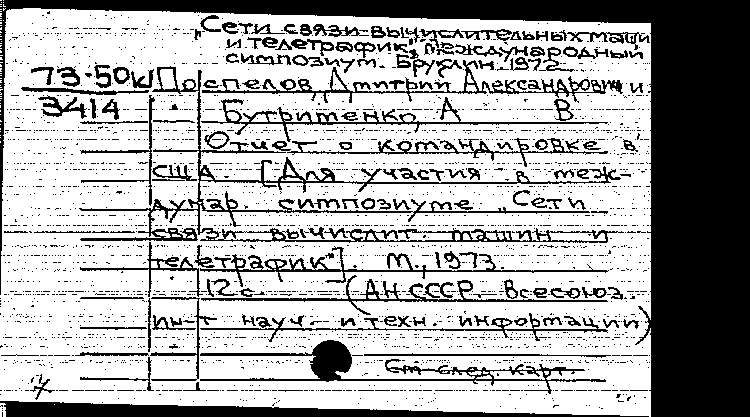 „Сети связи вычислительных маши
и телетрафик", международный
симпозиум. Бруклин. 1972
73-50к/
3414
Поспелов, Дмитрий Александрович и
Бутрименко, А В
Отчет о командировке в
США. [Для участия в меж-
дунар. симпозиуме „Сети
связи вычислит. машин и
телетрафик"]. М., 1973.
12 с. (АН СССР. Всесоюз.
ин-т науч. и техн. информации)
См след. карт.